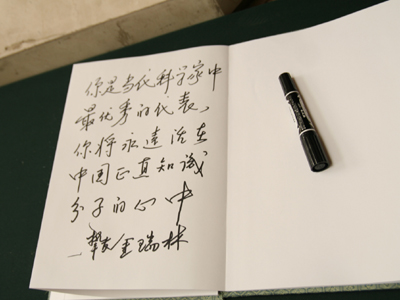 你是当代科学家中
最优秀的代表,
你将永远活在
中国正直知识
分子的心中
—挚友金瑞林